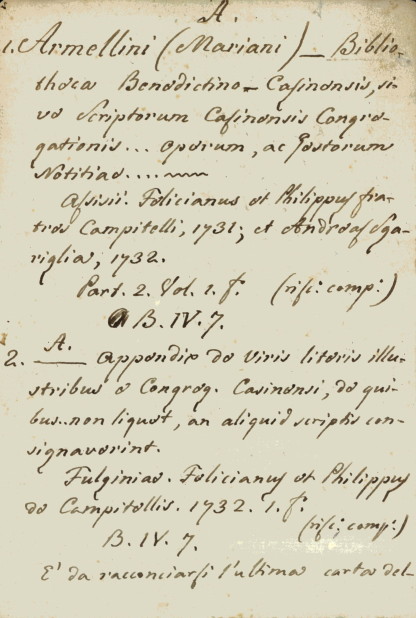 A.
1. Armellini (Mariani) — Biblio-
theca Benedictino-Casinensis, si-
ve Scriptorum Casinensis Congre-
gationis... operum, ac Gestorum
Notitiae....
Assisii. Felicianus et Philippus fra-
tres Campitelli, 1731; et Andreas Sga-
riglia, 1732.
Part. 2. Vol. 1. f. (risc: comp:)
B. IV. 7.
2. A. — Appendix de Viris literis illu-
stribus e Congreg. Casinensi, de qui-
bus.. non liquet, an aliquid scriptis con-
signaverint.
Fulginiae. Felicianus et Philippus
de Campitellis. 1732. 1. f.
(risc: comp:)
B. IV. 7.
E' da racconciarsi l'ultima carta del-